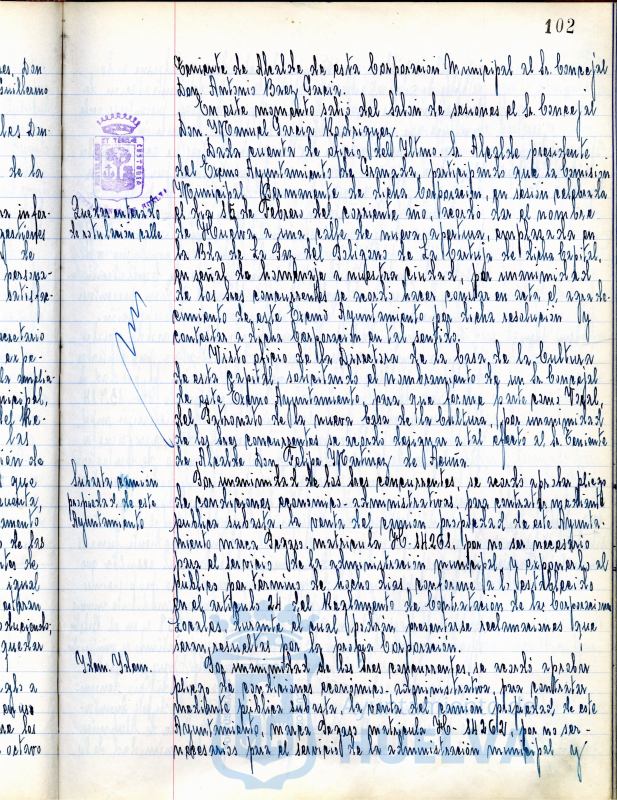 102
Teniente de Alcalde de esta Corporación Municipal al Sr. Concejal
Don Antonio Baez Garcia.
En este momento salió del Salón de sesiones el Sr. Concejal
Don Manuel Garcia Rodriguez.
Dada cuenta de oficio del Iltmo. Sr. Alcalde presidente
del Excmo Ayuntamiento de Granada, participando que la Comisión
Municipal Permanente de dicha Corporación, en sesión celebrada
el dia 15 de Febrero del corriente año, acordó dar el nombre
de Huelva a una calle de nueva apertura, emplazada en
la Bda de La Paz del Poligono de La Cartuja de dicha Capital,
en señal de homenaje a nuestra ciudad, por unanimidad
de los tres concurrentes se acordó hacer constar en acta el agrade-
cimiento de este Excmo Ayuntamiento por dicha resolución y
contestar a dicha Corporación en tal sentido.
Visto oficio de la Directora de la Casa de la Cultura
de esta Capital, solicitando el nombramiento de un Sr. Concejal
de este Excmo Ayuntamiento, para que forme parte como Vocal,
del Patronato de la nueva Casa de la Cultura, por unanimidad
de los tres concurrentes se acordó designar a tal efecto al Sr. Teniente
de Alcalde Don Felipe Martinez de Acuña.
Subasta camión
propiedad de este
Ayuntamiento
Por unanimidad de los tres concurrentes, se acordó aprobar pliego
de condiciones economico-administrativas, para contratar mediante
publica subasta, la venta del camion propiedad de este Ayunta-
miento marca Pegaso matricula H-14261, por no ser necesario
para el servicio de la administración municipal, y exponerlo al
público por término de hocho dias, conforme a lo establecido
en el articulo 24 del Reglamento de Contratación de las Corporaciones
Locales, durante el cual podrán presentarse reclamaciones que
seran resueltas por la propia Corporación.
Idem. Idem.
Por unanimidad de los tres concurrentes, se acordó aprobar
pliego de condiciones economico-administrativa, para contratar
mediante publica subasta, la venta del camión propiedad de este
Ayuntamiento, marca Pegaso matricula H-14262, por no ser
necesarios para el servicio de la administración municipal y
HUELVA